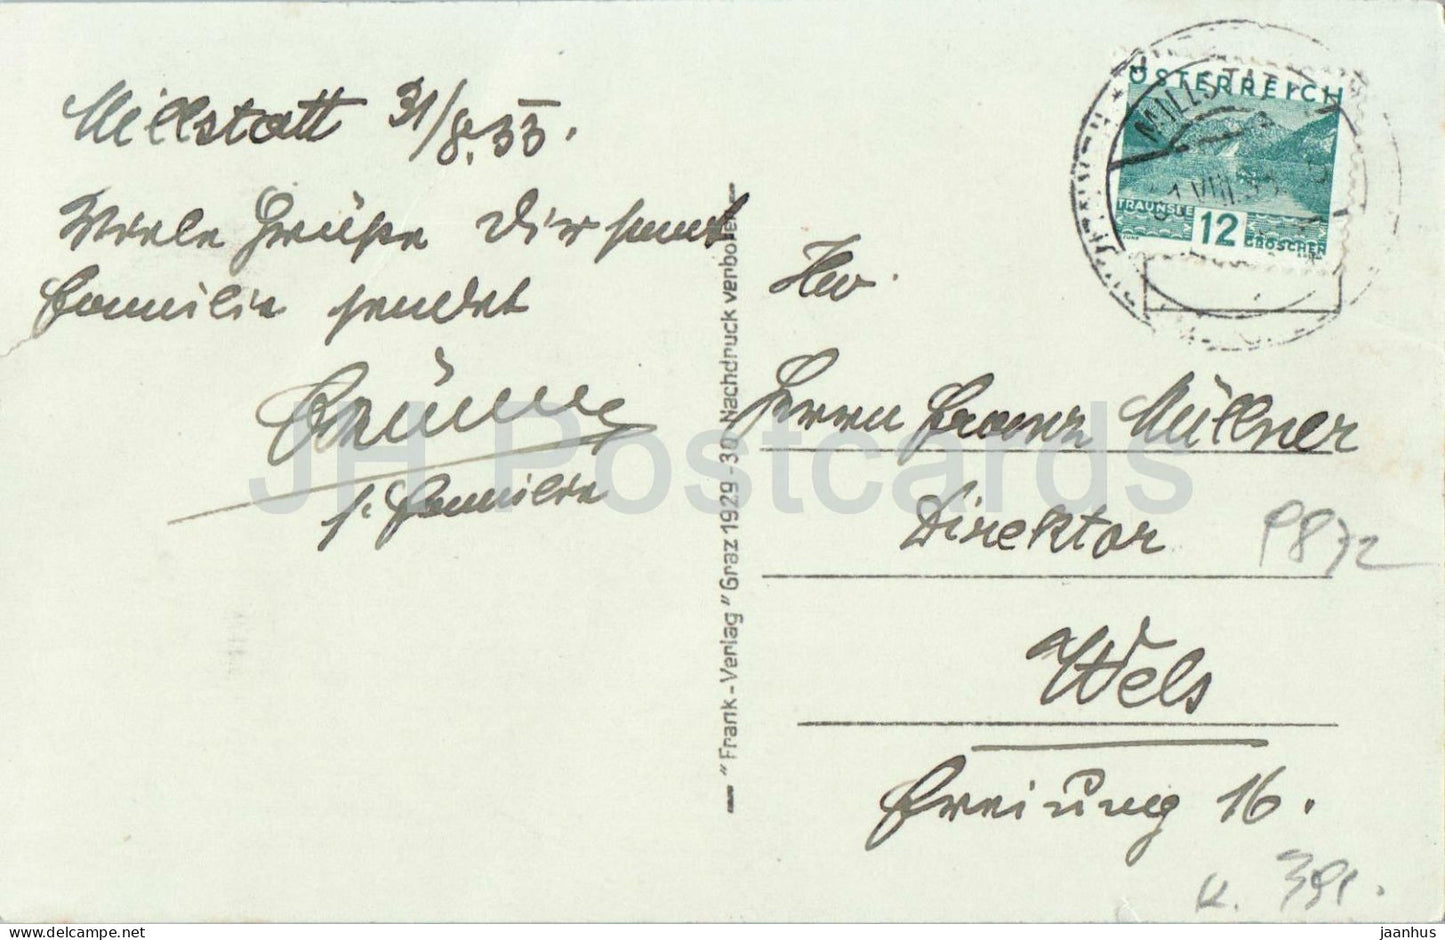 Millstatt 31/8.33.
Viele Grüße Dir samt
Familie sendet
s. Familie
"Frank-Verlag" Graz 1929-30 Nachdruck verboten
ÖSTERREICH
TRAUNSEE
12
GROSCHEN
MILLSTATT
VIII
Herrn Franz Müllner
Direktor
P872
Wels
Freiung 16.
K. 391.
JH Postcards
jaanhus @ delcampe.net